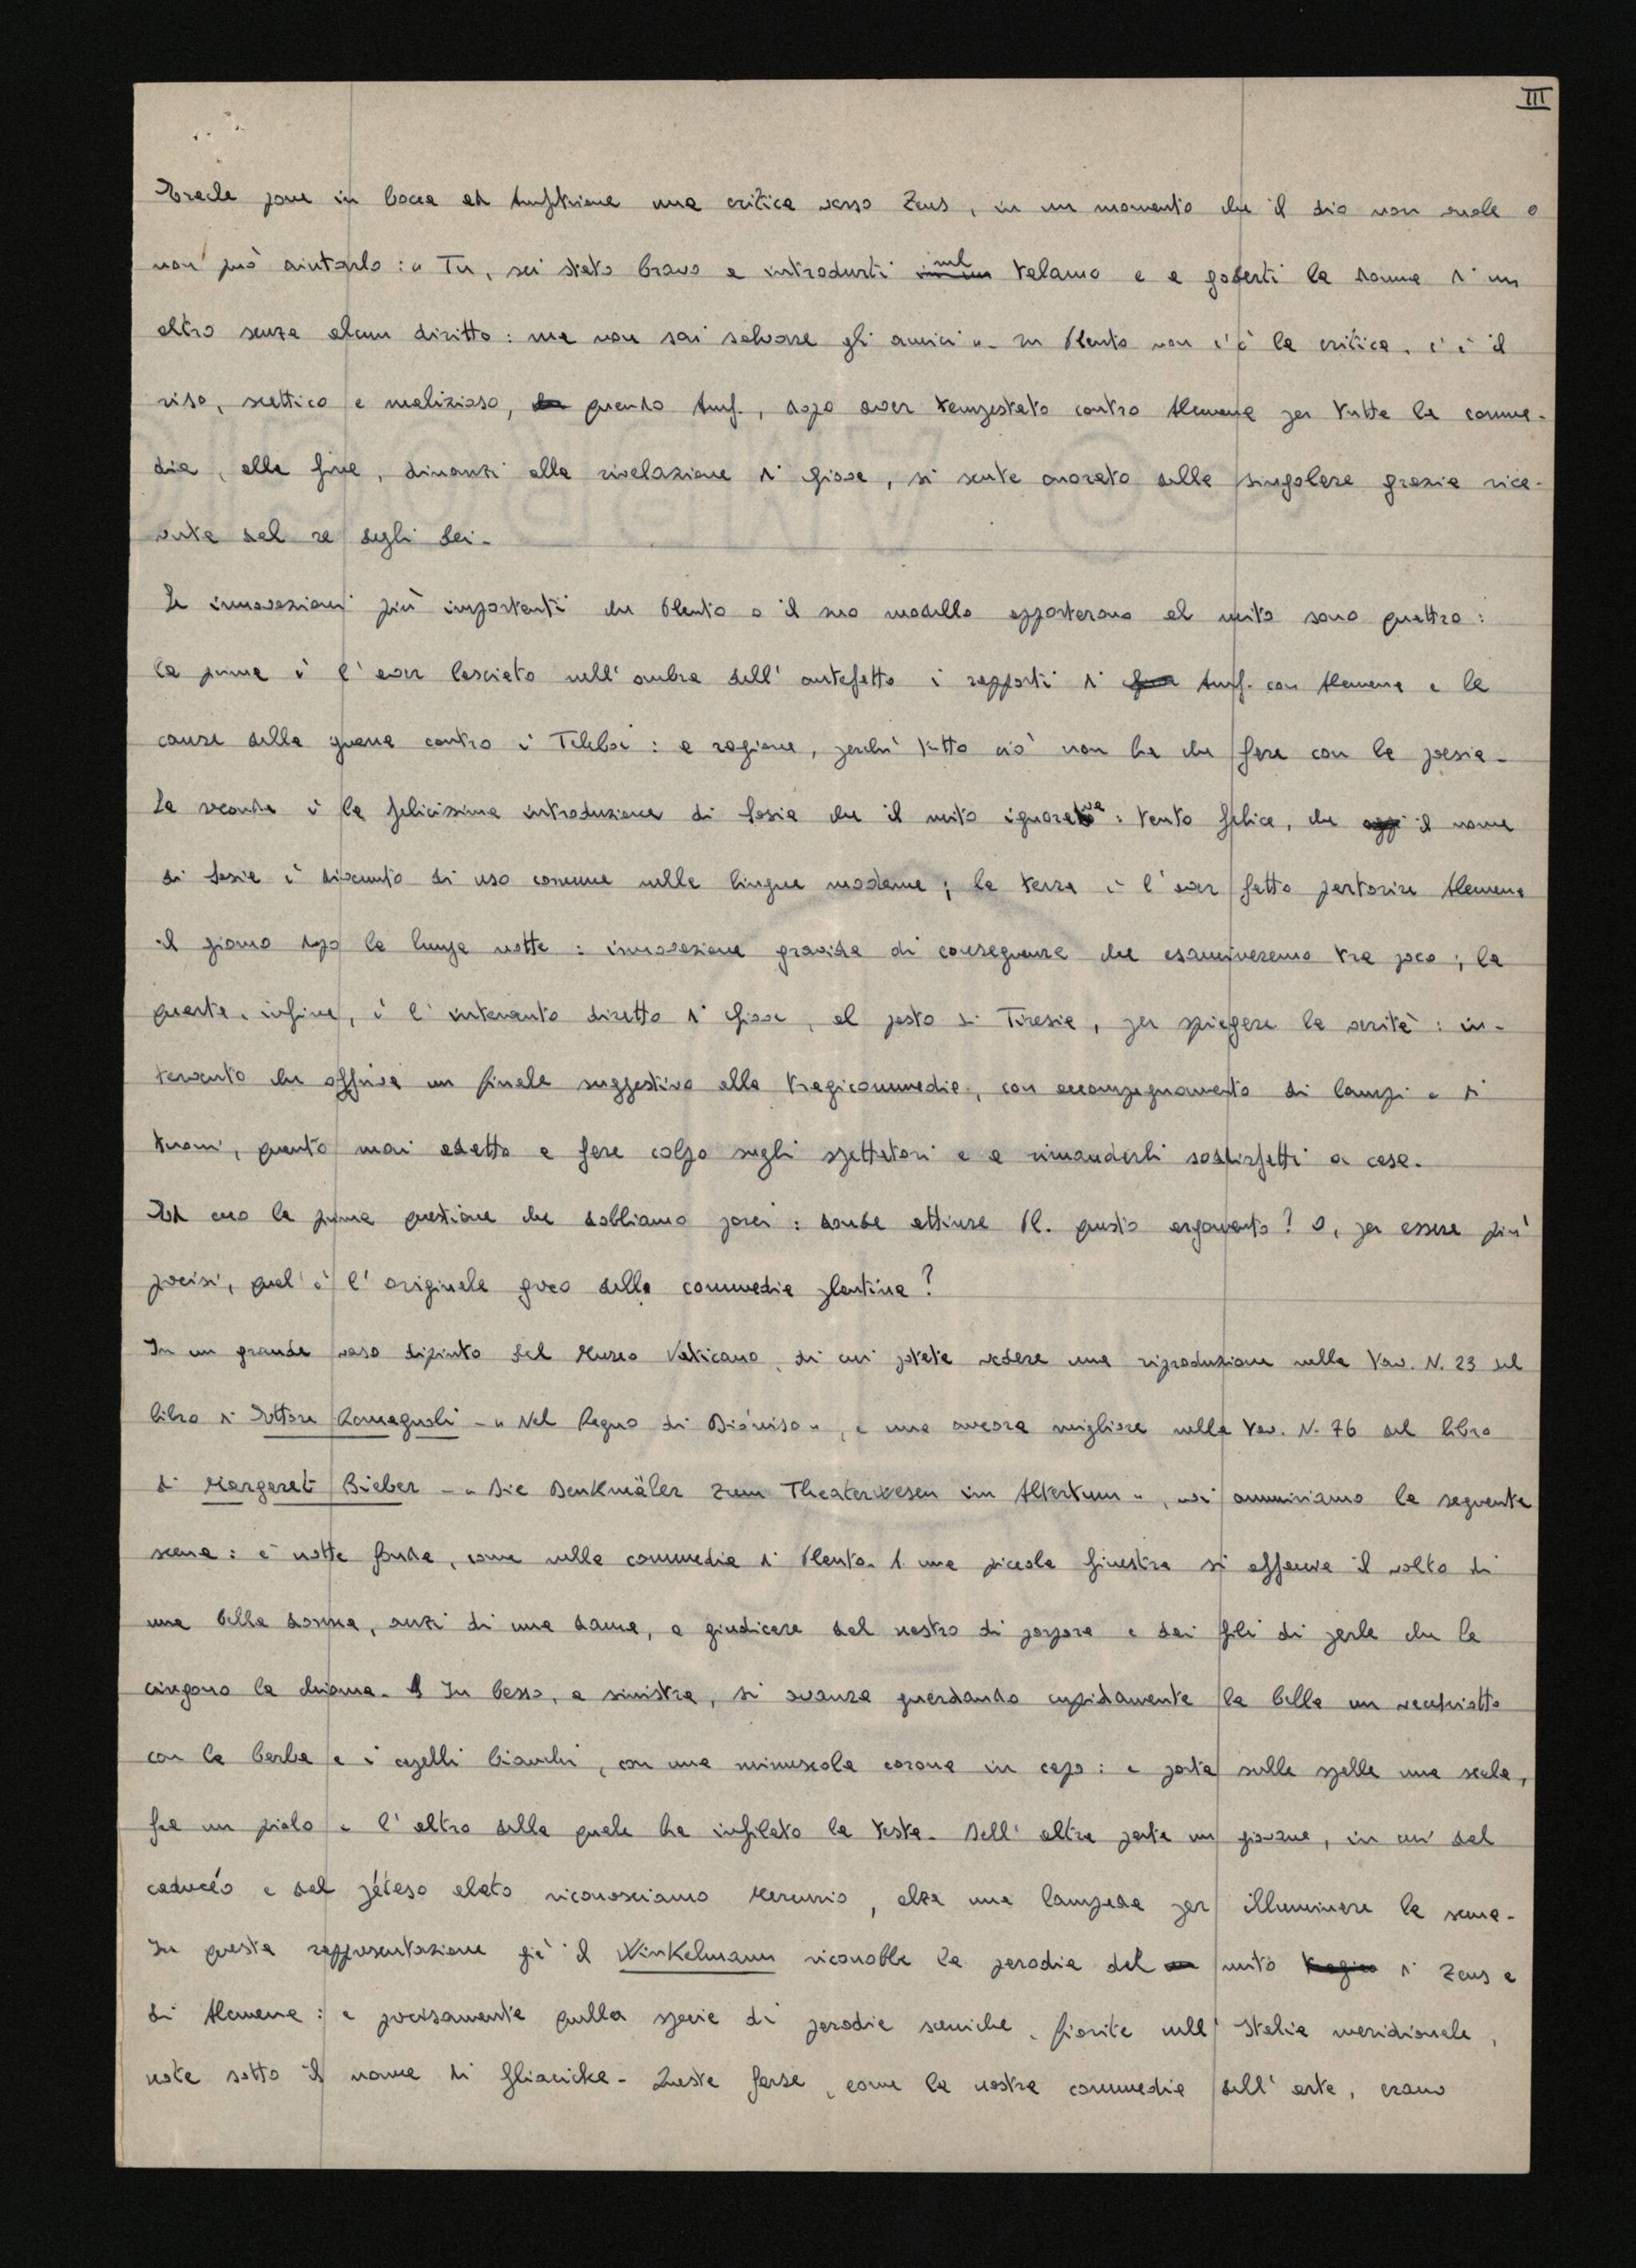 III
Eracle pone in bocca ad Anfitrione una critica verso Zeus, in un momento che il dio non vuole o
non può aiutarlo: " Tu, sei stato bravo a introdurti nel talamo e a goderti la donna d'un
altro senza alcun diritto: ma non sai salvare gli amici ". In Plauto non c'è la critica, c'è il
riso, scettico e malizioso, quando Anf., dopo aver tempestato contro Alcmena per tutta la comme-
dia, alla fine, dinanzi alla rivelazione di Giove, si sente onorato della singolare grazia rice-
vuta dal re degli dei.
Le innovazioni più importanti che Plauto o il suo modello apportarono al mito sono quattro:
la prima è l'aver lasciato nell'ombra dell'antefatto i rapporti di Anf. con Alcmena e la
causa della guerra contro i Teleboi: a ragione, perché tutto ciò non ha che fare con la poesia.
La seconda è la felicissima introduzione di Sosia che il mito ignorava: tanto felice, che il nome
di Sosia è divenuto di uso comune nelle lingue moderne; la terza è l'aver fatto partorire Alcmena
il giorno dopo la lunga notte: innovazione gravida di conseguenze che esamineremo tra poco; la
quarta, infine, è l'intervento diretto di Giove, al posto di Tiresia, per spiegare la verità: in-
tervento che offriva un finale suggestivo alla tragicommedia, con accompagnamento di lampi e di
tuoni, quanto mai adatto a fare colpo sugli spettatori e a rimandarli soddisfatti a casa.
Ed ecco la prima questione che dobbiamo porci: donde attinse Pl. questo argomento? O, per essere più
precisi, qual'è l'originale greco della commedia plautina?
In un grande vaso dipinto del Museo Vaticano, di cui potete vedere una riproduzione nella Tav. N. 23 del
libro di Ettore Romagnoli - " Nel Regno di Diòniso ", e una ancora migliore nella Tav. N. 76 del libro
di Margaret Bieber - " Die Denkmäler zum Theaterwesen im Altertum ", noi ammiriamo la seguente
scena: è notte fonda, come nella commedia di Plauto. A una piccola finestra si affaccia il volto di
una bella donna, anzi di una dama, a giudicare dal nastro di porpora e dai fili di perle che le
cingono la chioma. In basso, a sinistra, si avanza guardando cupidamente la bella un vecchietto
con la barba e i capelli bianchi, con una minuscola corona in capo: e porta sulle spalle una scala,
fra un piolo e l'altro della quale ha infilato la testa. Dall'altra parte un giovane, in cui dal
caducéo e dal pétaso alato riconosciamo Mercurio, alza una lampada per illuminare la scena.
In questa rappresentazione già il Winkelmann riconobbe la parodia del mito di Zeus e
di Alcmena: e precisamente quella specie di parodie sceniche, fiorite nell'Italia meridionale,
note sotto il nome di fliaciche. Queste farse, come la nostra commedia dell'arte, erano